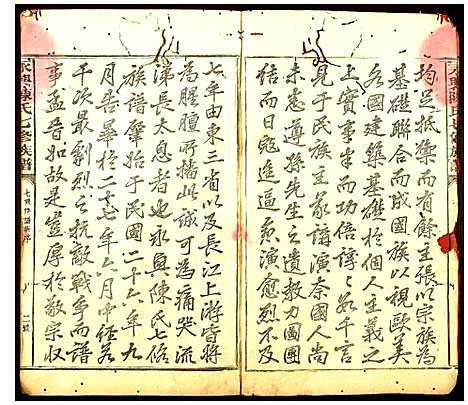 均足抵禦而有餘主張以宗族為
基礎聯合而成國族以視歐美
各國建築基礎於個人主義之
上實事半而功倍諄諄若千言
見于民族主義講演奈國人尚
未悉遵孫先生之遺教力圖團
結而日寇進逼愈演愈烈不及
七年由東三省以及長江上游皆將
為腥膻所播此誠可為痛哭流
涕長太息者也永興陳氏七修
族譜肇始于民國二十六年九
月告畢於二十七年六月中經若
干次最劇烈之抗敵戰爭而譜
事益晉如故是豈厚於敬宗收
永興陳氏七修族譜
七修族譜序
二號